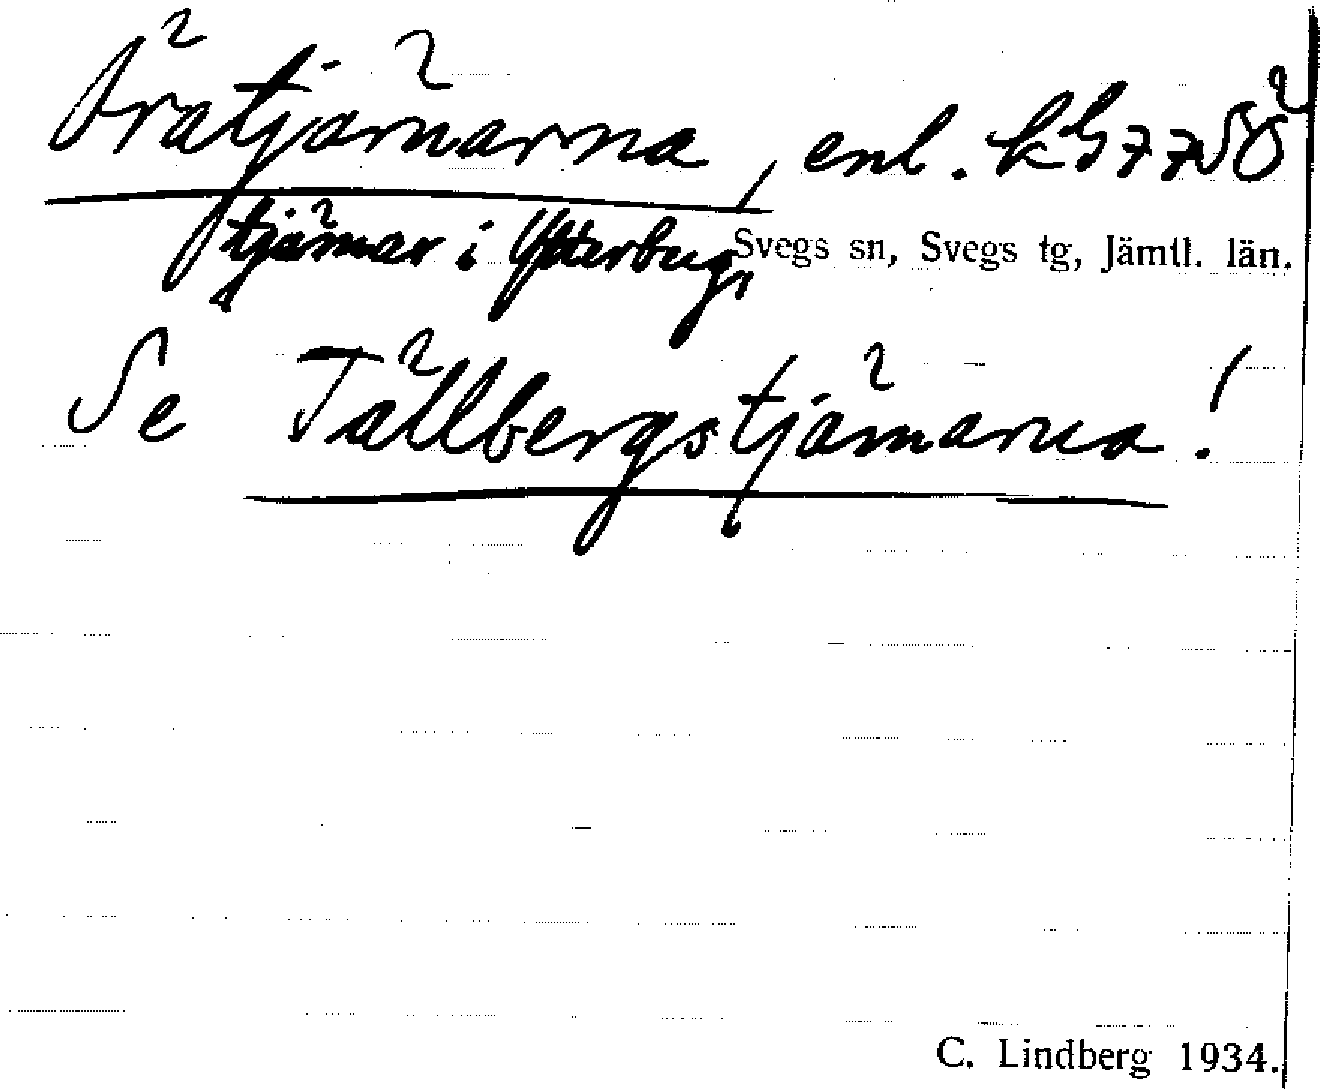 Örätjärnarna, enl. kbl 77 SÖ
tjärnar i Ytterberg,
Svegs sn, Svegs tg, Jämtl. län.
Se Tällbergstjärnarna!
C. Lindberg 1934.